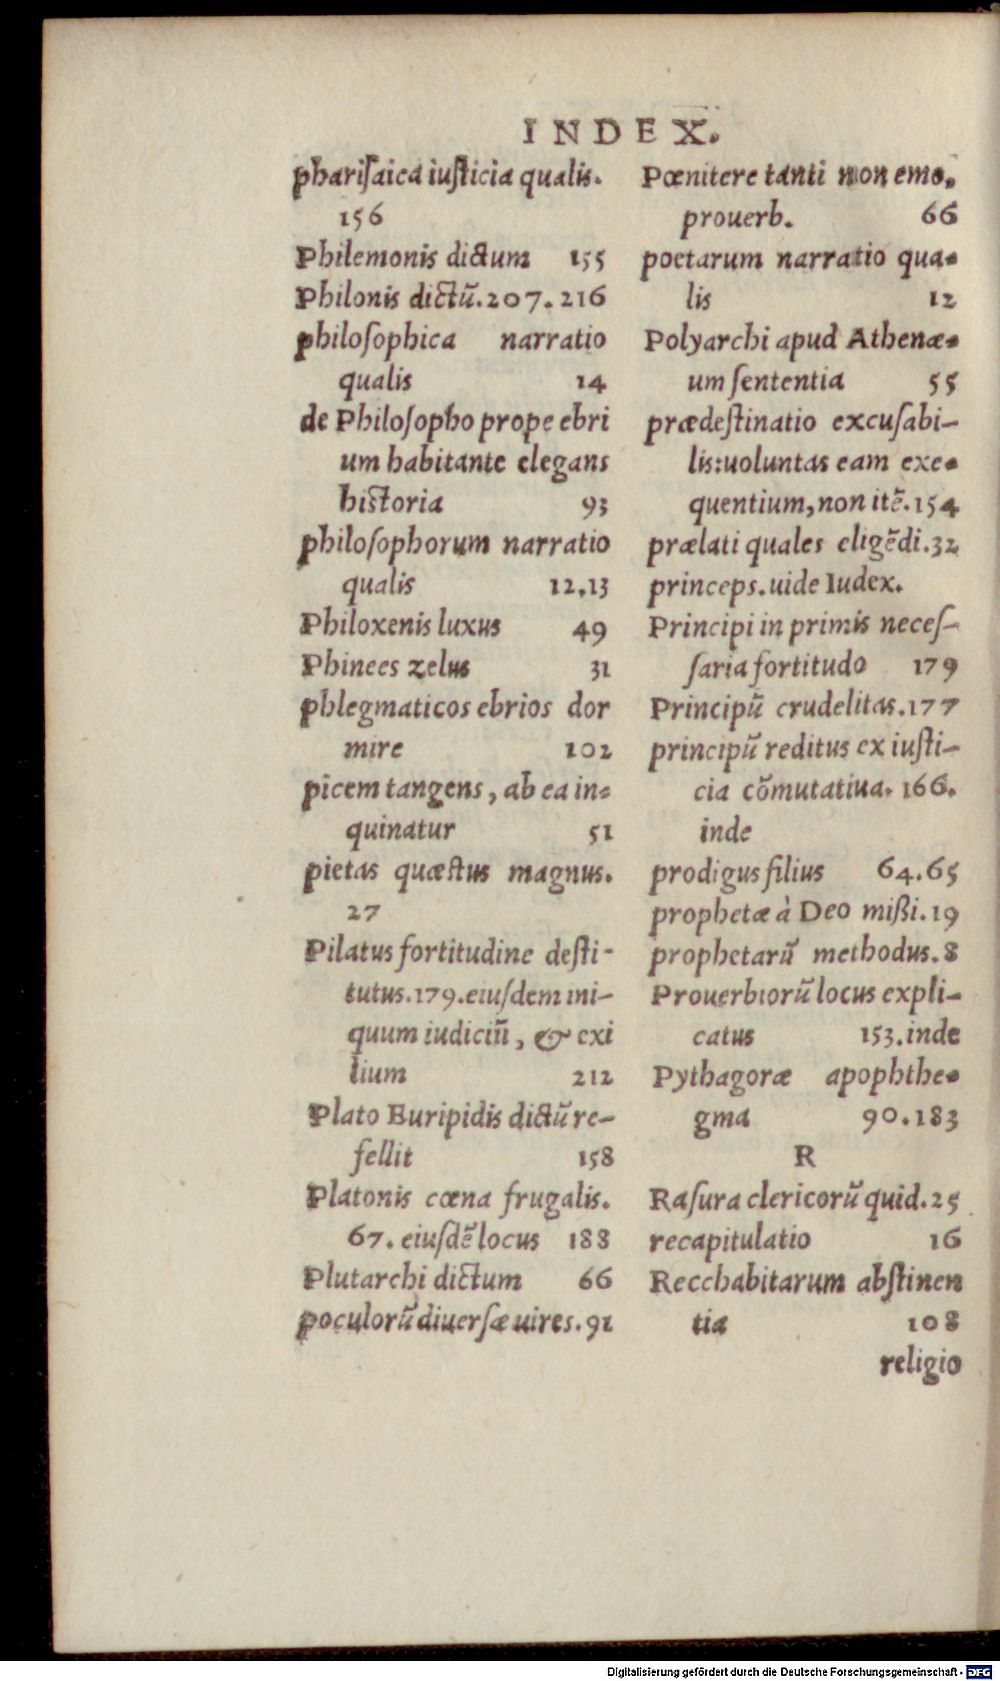 INDEX.
phariſaica iuſticia qualis.
156
Philemonis dictum 155
Philonis dictũ. 207. 216
philoſophica narratio
qualis 14
de Philoſopho prope ebri
um habitante elegans
historia 93
philoſophorum narratio
qualis 12.13
Philoxenis luxus 49
Phinees zelus 31
phlegmaticos ebrios dor
mire 102
picem tangens, ab ea in=
quinatur 51
pietas quæstus magnus.
27
Pilatus fortitudine deſti-
tutus. 179. eiuſdem ini-
quum iudiciũ, & exi
lium 212
Plato Euripidis dictũ re-
fellit 158
Platonis cœna frugalis.
67. eiuſdẽ locus 188
Plutarchi dictum 66
poculorũ diuerſæ uires. 91
Pœnitere tanti non emo,
prouerb. 66
poetarum narratio qua=
lis 12
Polyarchi apud Athenæ=
um ſententia 55
prædeſtinatio excuſabi-
lis: uoluntas eam exe=
quentium, non itẽ. 154
prælati quales eligẽdi. 32
princeps. uide Iudex.
Principi in primis neceſ-
ſaria fortitudo 179
Principũ crudelitas. 177
principũ reditus ex iuſti-
cia cõmutatiua. 166.
inde
prodigus filius 64.65
prophetæ à Deo mißi. 19
prophetarũ methodus. 8
Prouerbiorũ locus expli-
catus 153. inde
Pythagoræ apophthe=
gma 90. 183
R
Raſura clericorũ quid. 25
recapitulatio 16
Recchabitarum abſtinen
tia 108
religio
Digitalisierung gefördert durch die Deutsche Forschungsgemeinschaft - DFG